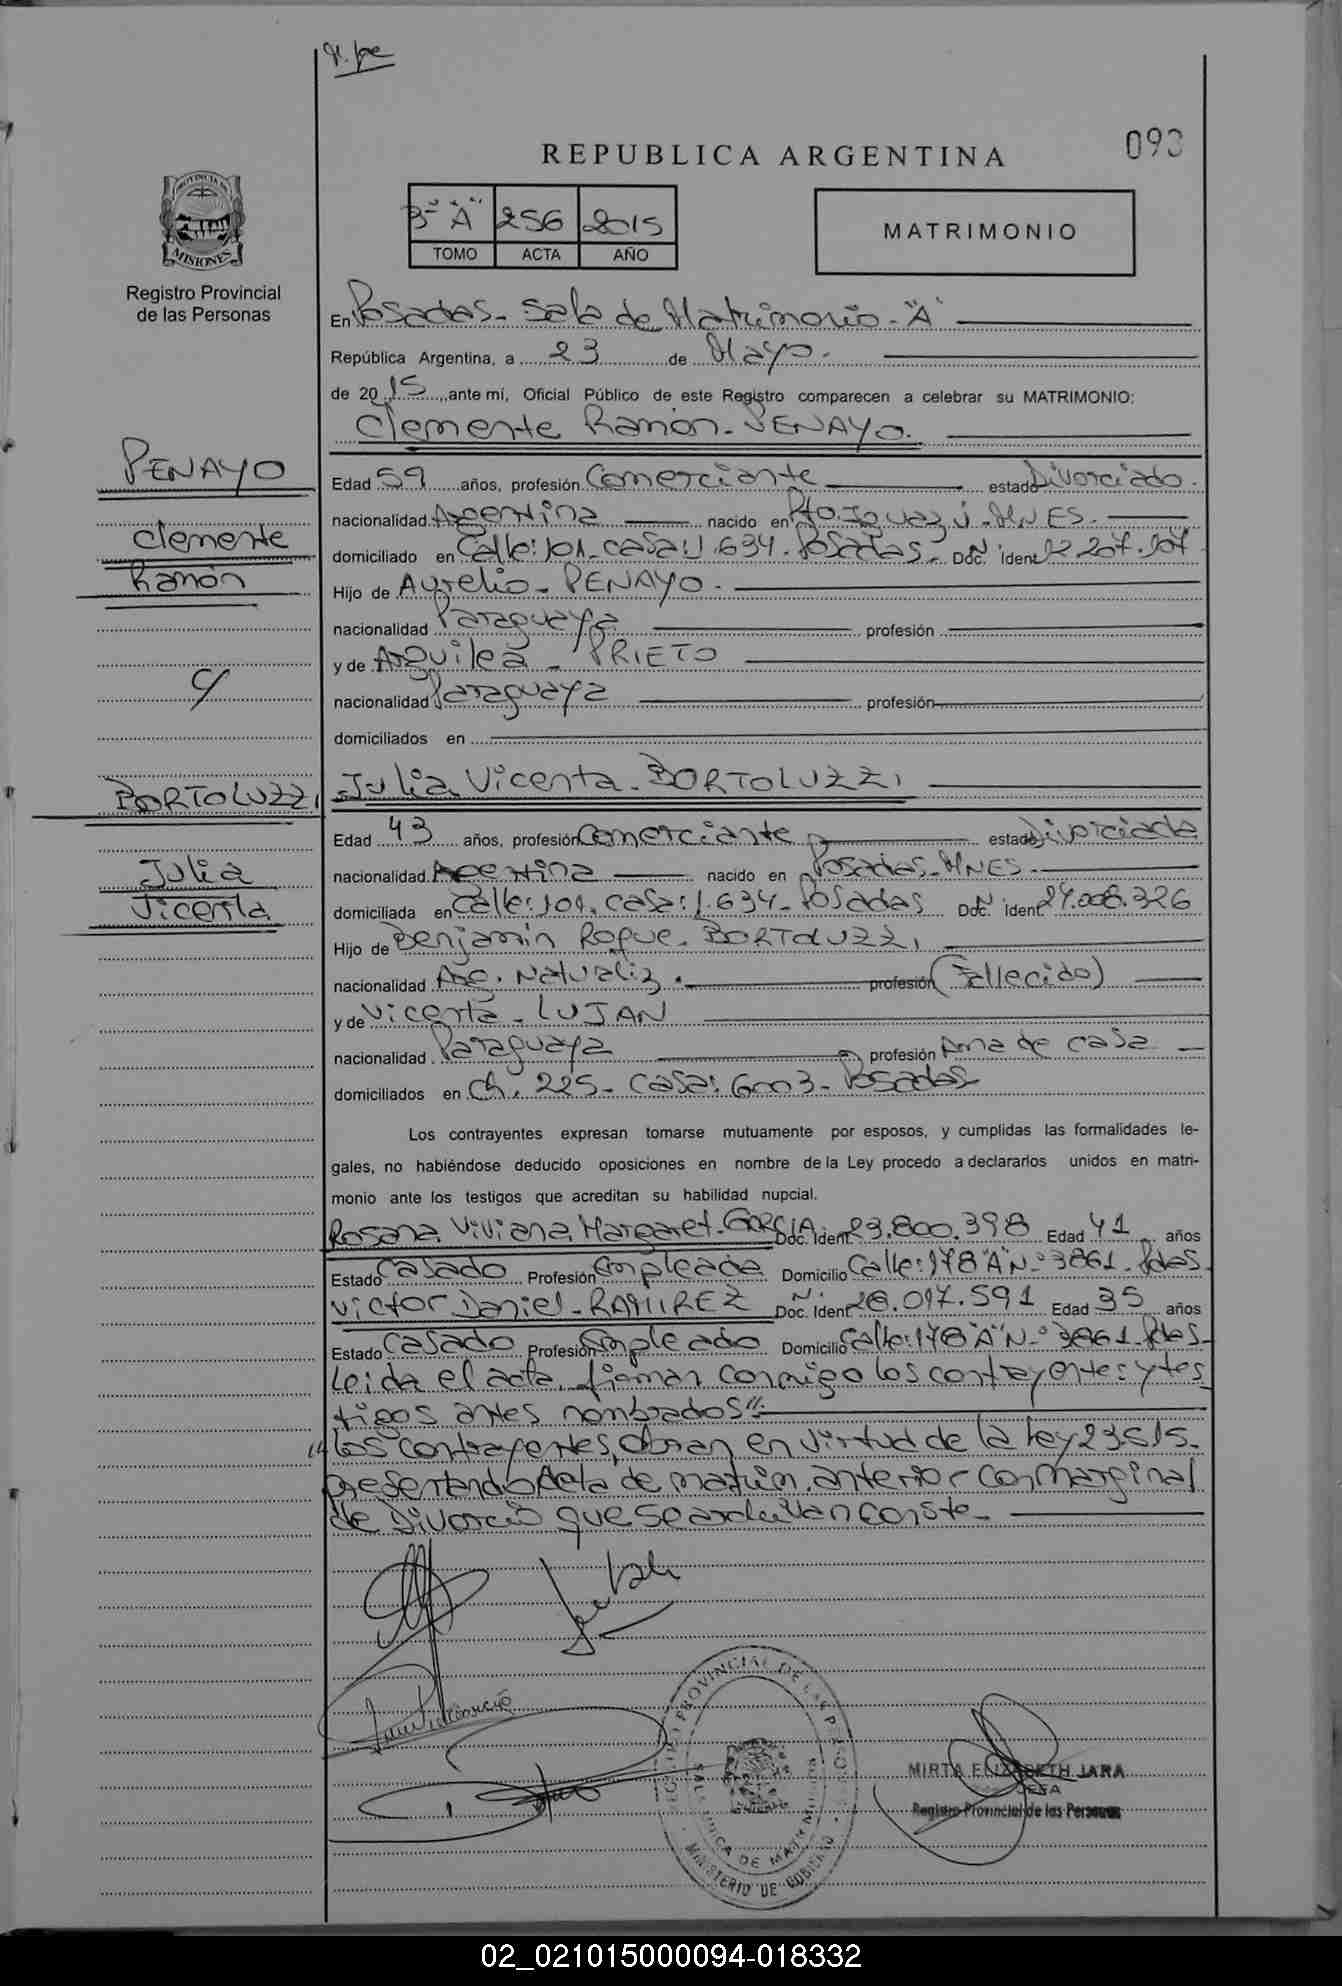 093
REPUBLICA ARGENTINA
3º "A" 256 2015
TOMO ACTA AÑO
MATRIMONIO
PROVINCIA DE
MISIONES
Registro Provincial
de las Personas
En Posadas - Sala de Matrimonio - "A"
República Argentina, a 23 de Mayo.
de 2015, ante mí, Oficial Público de este Registro comparecen a celebrar su MATRIMONIO:
Clemente Ramón - PENAYO.
PENAYO
Clemente
Ramón
c/
BORTOLUZZI
Julia
Vicenta
Edad 59 años, profesión Comerciante estado Divorciado.
nacionalidad Argentina nacido en Pto. Iguazú - MNES.
domiciliado en Calle: 101 - casa: 1.634 - Posadas - Doc. Nº ident 12.207.907
Hijo de Aurelio - PENAYO.
nacionalidad Paraguaya profesión
y de Arquilea - PRIETO
nacionalidad Paraguaya profesión
domiciliados en
Julia Vicenta - BORTOLUZZI
Edad 43 años, profesión Comerciante estado Divorciada
nacionalidad Argentina nacido en Posadas - MNES.
domiciliada en Calle: 101, casa: 1.634 - Posadas Doc. Nº ident 24.008.326
Hijo de Benjamin Roque - BORTOLUZZI
nacionalidad Arg. Naturaliz. profesión (Fallecido)
y de Vicenta - LUJAN
nacionalidad Paraguaya profesión Ama de casa
domiciliados en Ch. 225 - casa: 6003 - Posadas
Los contrayentes expresan tomarse mutuamente por esposos, y cumplidas las formalidades le-
gales, no habiéndose deducido oposiciones en nombre de la Ley procedo a declararlos unidos en matri-
monio ante los testigos que acreditan su habilidad nupcial.
Rosana Viviana Margaret - GARCIA Doc. Ident 23.800.398 Edad 41 años
Estado Casado Profesión Empleada Domicilio Calle: 178 "A" Nº 3861 - Pdas.
Victor Daniel - RAMIREZ Doc. Ident 28.017.591 Edad 35 años
Estado Casado Profesión Empleado Domicilio Calle: 178 "A" Nº 3861 - Pdas -
Leida el acta, firman conmigo los contrayentes y tes
tigos antes nombrados":
"Los contrayentes, obran en virtud de la Ley 23515.
presentando Acta de matrim. anterior con Marginal
de Divorcio que se archivan conste -
REGISTRO PROVINCIAL DE LAS PERSONAS
SALA UNICA DE MATRIMONIOS
MINISTERIO DE GOBIERNO
MIRTA ELIZABETH JARA
JEFA
Registro Provincial de las Personas
02_021015000094-018332